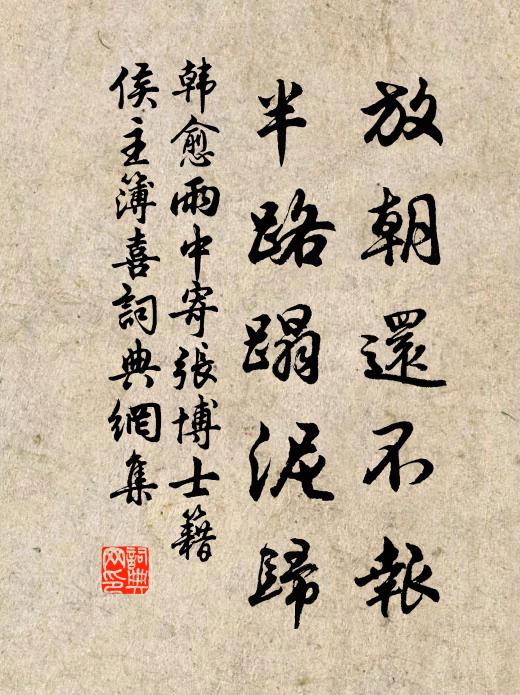 放朝還不報
半路蹋泥歸
韓愈雨中寄張博士籍
侯主簿喜詞典網集
詞典網印